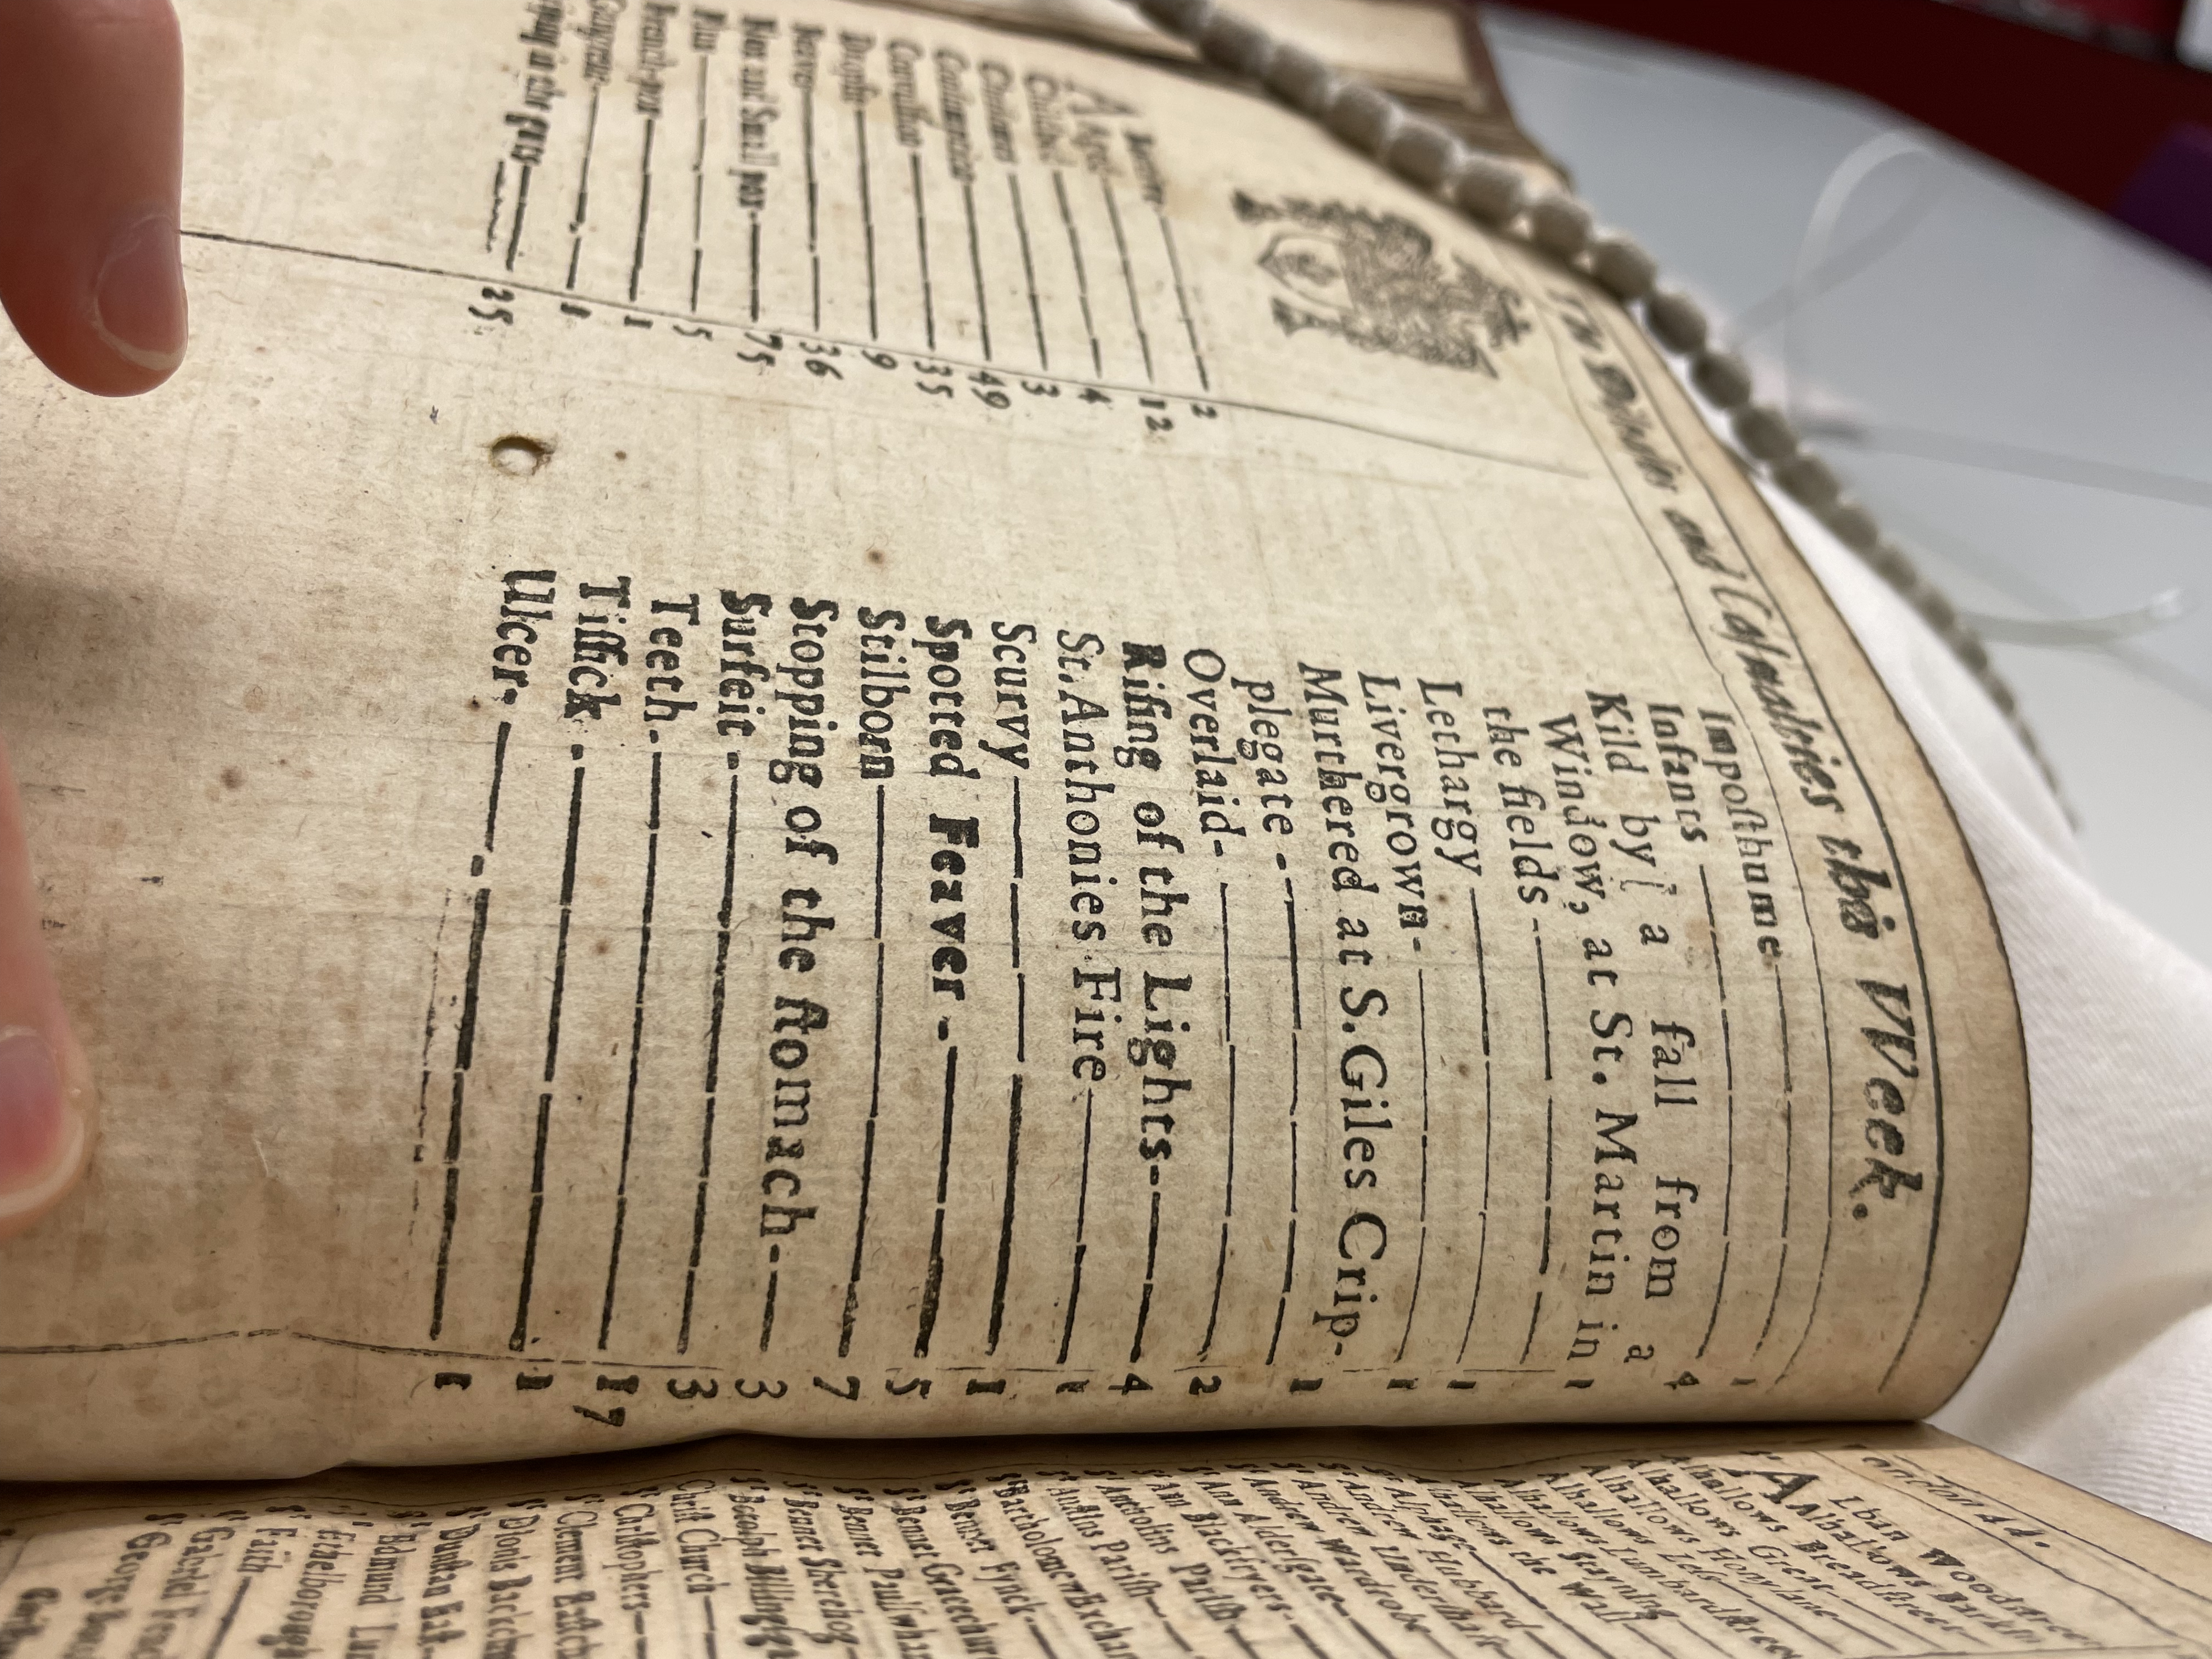 The Diseases and Casualties this Week.
Abortive 2
Aged 12
Childbed 4
Chrisomes 3
Consumption 49
Convulsion 35
Dropsie 9
Feaver 36
Flox and Small pox 75
Flux 5
French-pox 1
Gangrene 1
Griping in the guts 25
Imposthume 1
Infants 4
Kild by a fall from a
Window, at St. Martin in 1
the fields
Lethargy 1
Livergrown 1
Murthered at S. Giles Crip-
plegate 1
Overlaid 2
Rising of the Lights 4
St. Anthonies Fire 1
Scurvy 1
Spotted Feaver 5
Stilborn 7
Stopping of the stomach 3
Surfeit 3
Teeth 17
Tissick 1
Ulcer 1
London
St Alban Woodstreet
Alhallows Barkin
Alhallows Breadstreet
Alhallows Great
Alhallows Honylane
Alhallows Less
Alhallows Lumbardstreet
Alhallows Stayning
Alhallows the Wall
St Alphage
St Andrew Hubbard
St Andrew Undershaft
St Andrew Wardrobe
St Ann Aldersgate
St Ann Blackfryers
St Antholins Parish
St Austins Parish
St Bartholomew Exchan
St Bennet Fynck
St Bennet Gracechur
St Bennet Paulswhar
St Bennet Sherehog
St Botolph Billingsga
Christ Church
St Christophers
St Clement Eastch
St Dionis Backchu
St Dunstan East
St Edmund Lu
St Ethelborough
St Faith
St Gabriel Fenc
St George